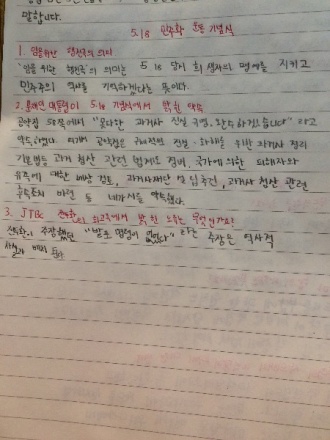 말합니다.
5.18 민주화 운동 기념식
1. 임을위한 행진곡의 의미
'임을 위한 행진곡'의 의미는 5.18 당시 희생자의 명예를 지키고
민주주의 역사를 기억하겠다는 뜻이다.
2. 문재인 대통령이 5.18 기념식에서 밝힌 약속
공약집 58쪽에서 "못다한 과거사 진실 규명, 완수하겠습니다" 라고
약속하였다. 공약집은 진실·화해를 위한 과거사 정리
기본법 등 과거 청산 관련 법제도 정비, 국가에 의한 피해자와
유족에 대한 배상 검토, 과거사재단 설립추진, 과거사 청산 관련
후속조치 마련 등 네가지를 약속했다.
3. JTBC 전두환 회고록에서 밝힌 오류는 무엇인가요?
전두환이 주장했던 "발포 명령이 없었다" 라는 주장은 역사적
사실과